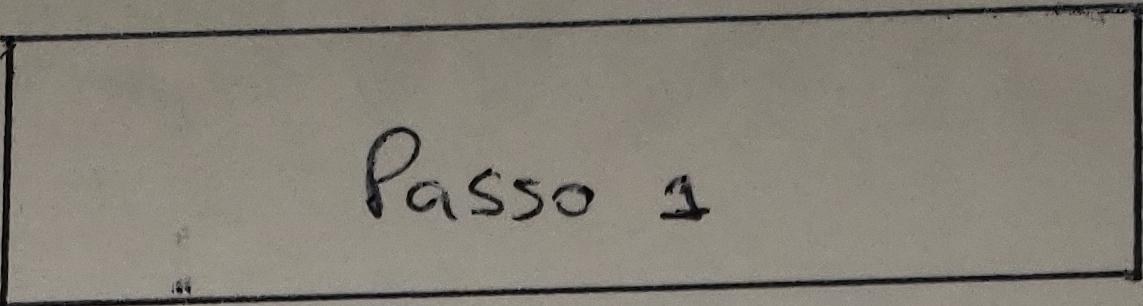 Passo 1